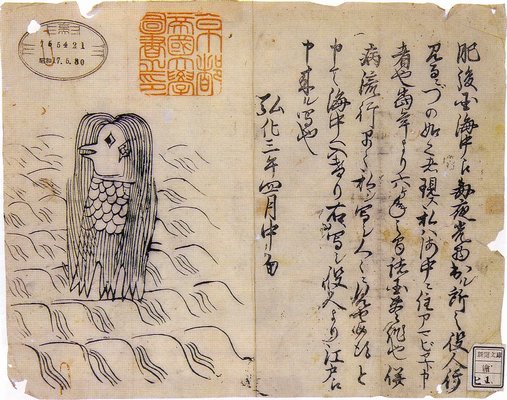 肥後国海中え毎夜光物出ル所之役人行
見るニづの如く者現ス私ハ海中ニ住アマビヱト申
者也当年より六ヶ年之間諸国豊作也併
病流行早々私ヲ写シ人々ニ見セ候得と
申て海中へ入けり右写シ役人より江戸え
申来ル写也
弘化三年四月中旬
京都
帝國大學
圖書之印
165421
昭和17.5.30
新聞文庫